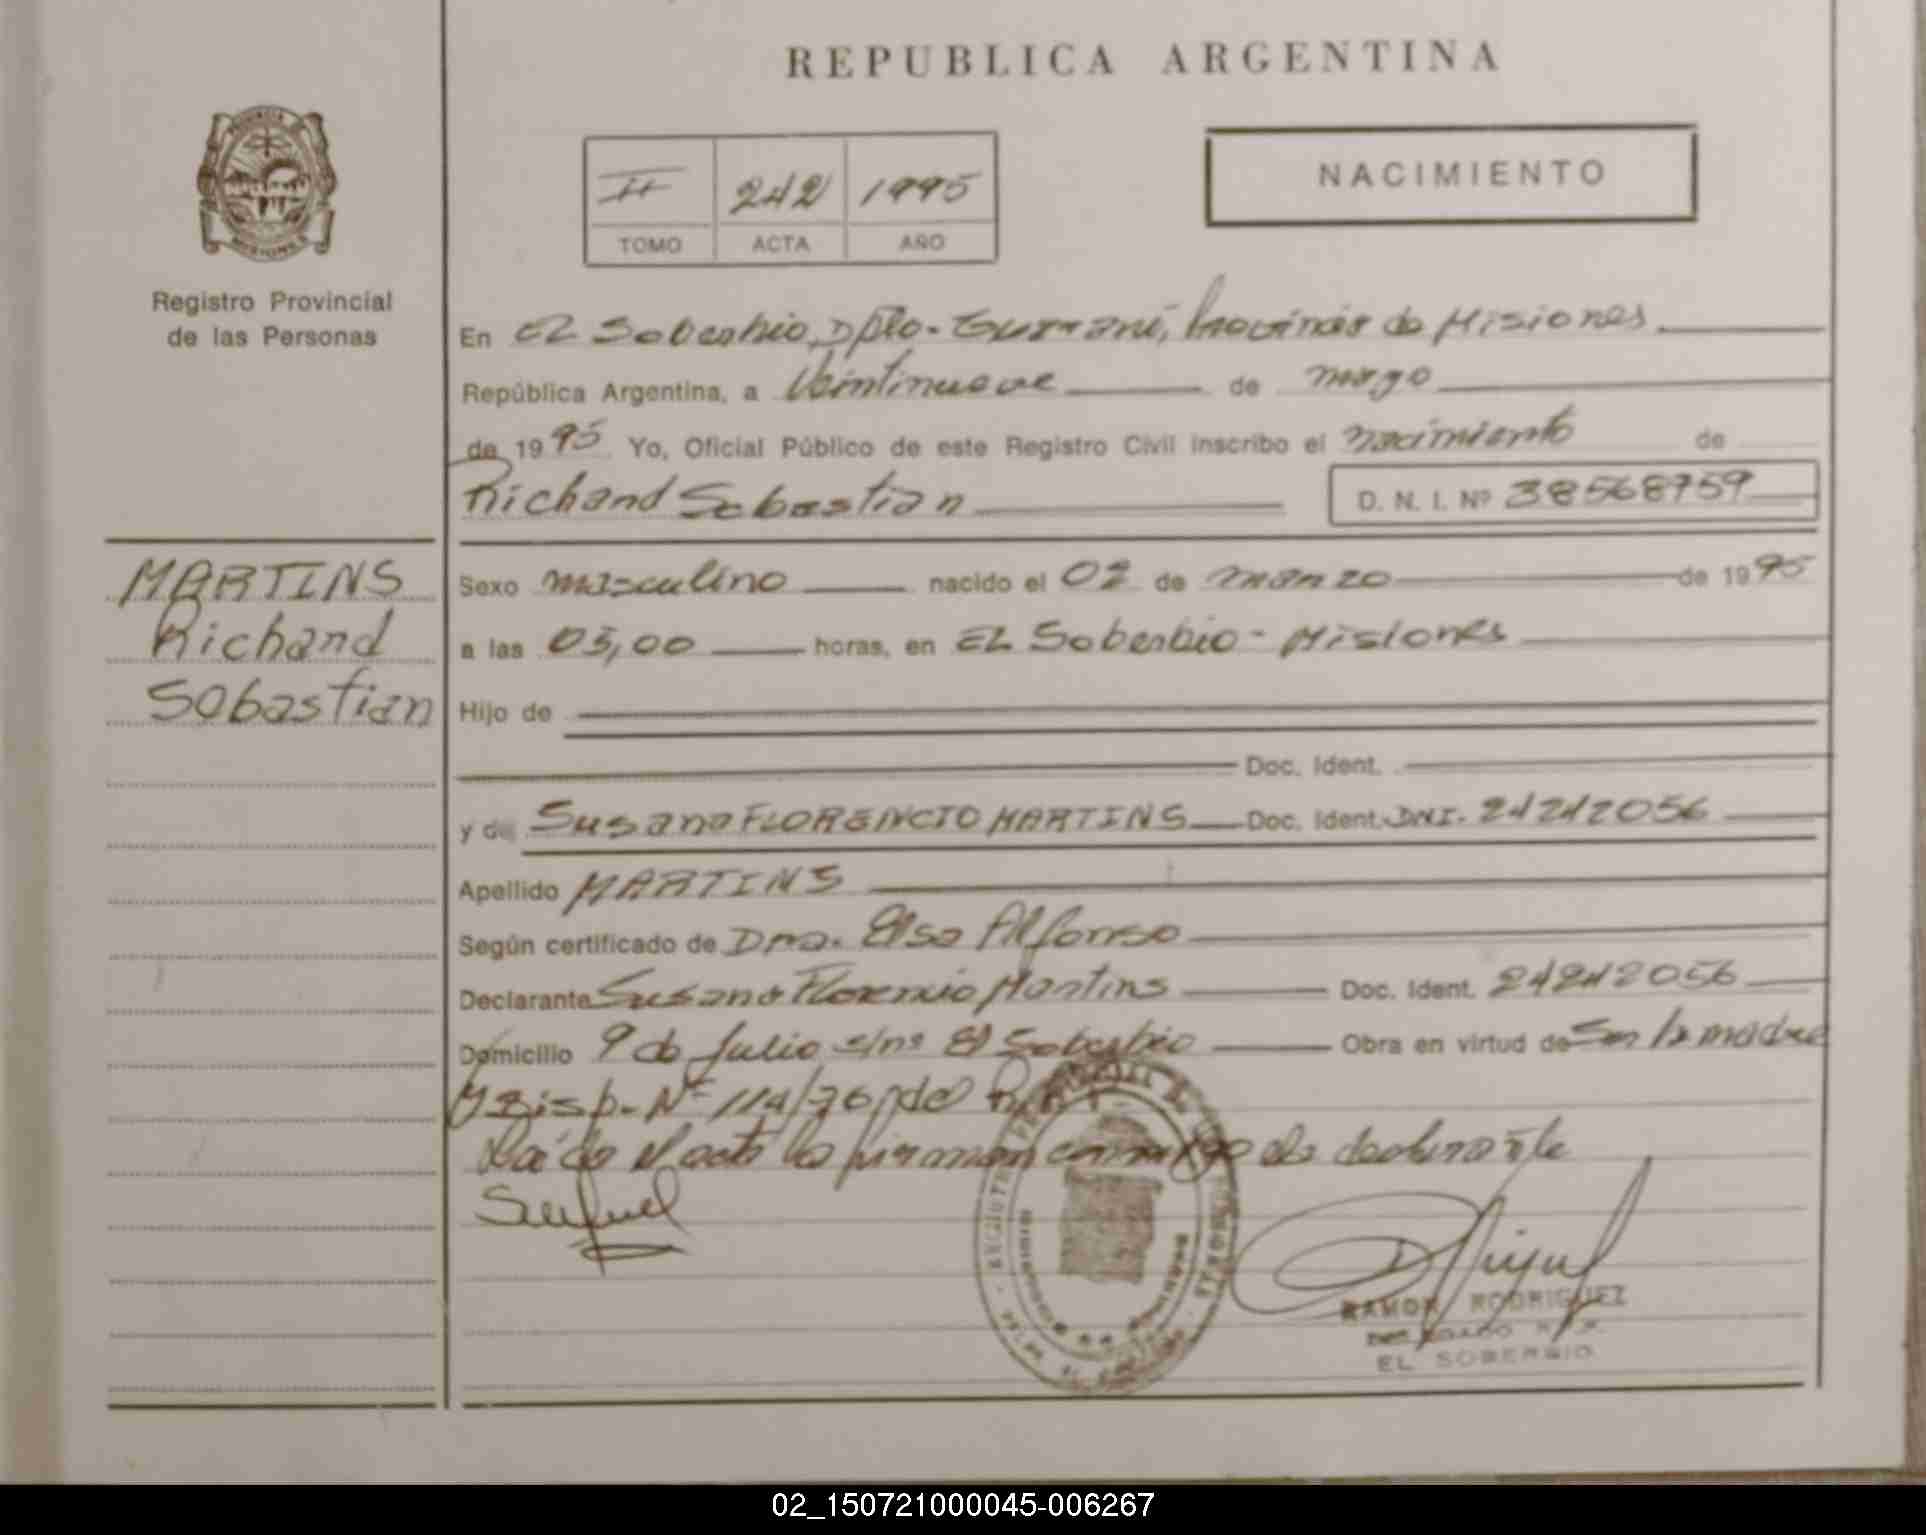 REPUBLICA ARGENTINA
II 242 1995
TOMO ACTA AÑO
NACIMIENTO
PROVINCIA
MISIONES
Registro Provincial
de las Personas
En El Soberbio, Dpto. Guaraní, Provincia de Misiones.
República Argentina, a Veintinueve de mayo
de 1995 Yo, Oficial Público de este Registro Civil inscribo el nacimiento de
Richard Sebastian D. N. I. Nº 38568759
MARTINS
Richard
Sebastian
Sexo masculino nacido el 02 de marzo de 1995
a las 05,00 horas, en El Soberbio - Misiones
Hijo de
Doc. Ident.
y de Susana FLORENCIO MARTINS Doc. Ident. DNI. 24242056
Apellido MARTINS
Según certificado de Dra. Elsa Alfonso
Declarante Susana Florencio Martins Doc. Ident. 24242056
Domicilio 9 de Julio s/nº El Soberbio Obra en virtud de Ser la madre
Disp. Nº 114/76 del
Leída el acta la firman conmigo el declarante
RAMON RODRIGUEZ
EL SOBERBIO
02_150721000045-006267